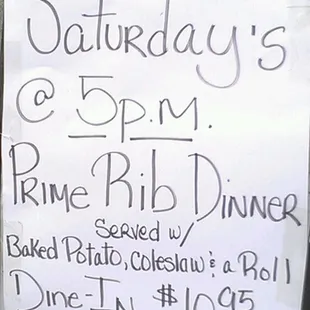 Saturday's
@ 5 p.m.
Prime Rib Dinner
Served w/
Baked Potato, Coleslaw & a Roll
Dine-In $10.95